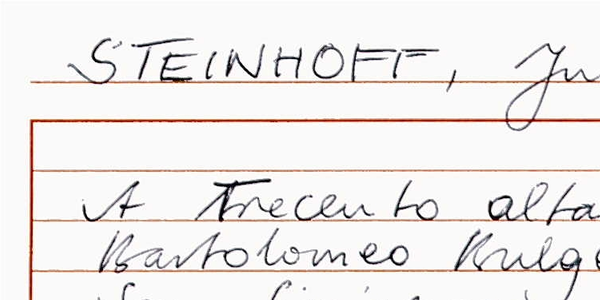 STEINHOFF, Ju
A Trecento alta
Bartolomeo Bulg